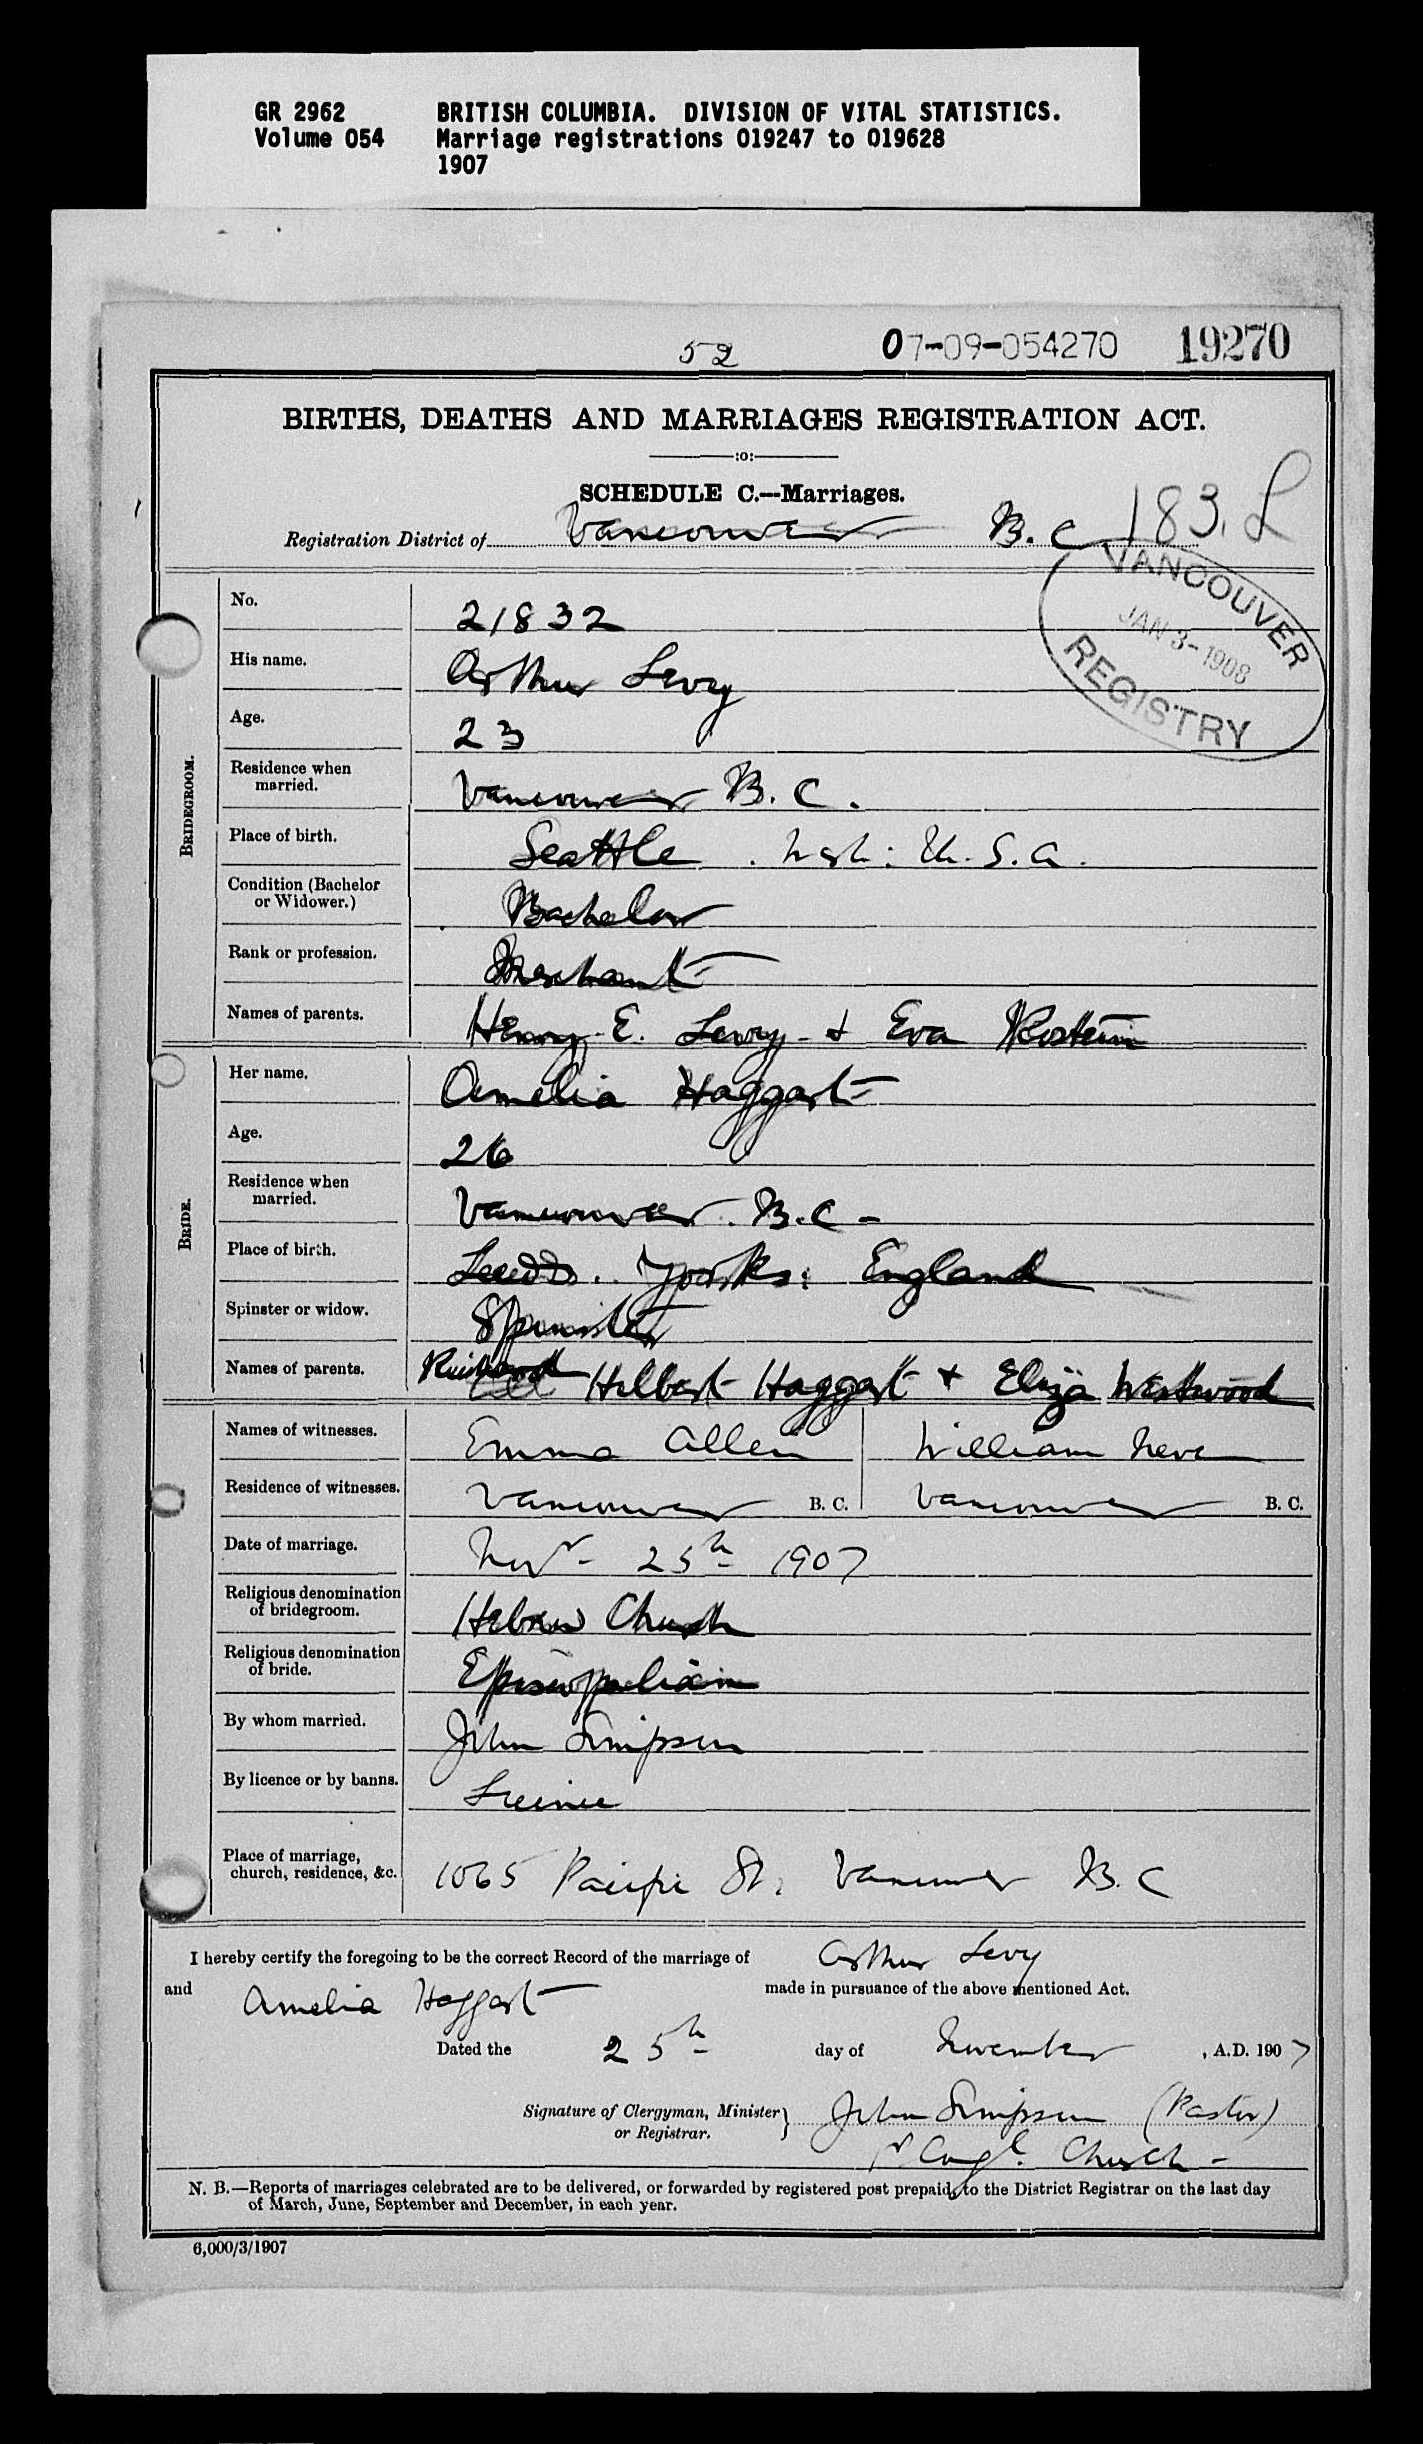 GR 2962 BRITISH COLUMBIA. DIVISION OF VITAL STATISTICS.
Volume 054 Marriage registrations 019247 to 019628
1907
52 07-09-054270 19270
BIRTHS, DEATHS AND MARRIAGES REGISTRATION ACT.
:o:
SCHEDULE C.—Marriages.
Registration District of Vancouver B.C 183. L
VANCOUVER
JAN 3-1908
REGISTRY
BRIDEGROOM.
No. 21832
His name. Arthur Levy
Age. 23
Residence when married. Vancouver B.C.
Place of birth. Seattle. Wash: U.S.A.
Condition (Bachelor or Widower.) Bachelor
Rank or profession. Merchant
Names of parents. Henry E. Levy & Eva Rostein
BRIDE.
Her name. Amelia Haggart
Age. 26
Residence when married. Vancouver. B.C -
Place of birth. Leeds. Yorks: England
Spinster or widow. Spinster
Names of parents. Richard Hilbert Haggart & Eliza Westwood
Names of witnesses. Emma Allen William Neve
Residence of witnesses. Vancouver B. C. Vancouver B. C.
Date of marriage. Novr - 25th 1907
Religious denomination of bridegroom. Hebrew Church
Religious denomination of bride. Episcopalian
By whom married. John Simpson
By licence or by banns. Licence
Place of marriage, church, residence, &c. 1065 Pacific St, Vancouver B.C
I hereby certify the foregoing to be the correct Record of the marriage of Arthur Levy
and Amelia Haggart made in pursuance of the above mentioned Act.
Dated the 25th day of November , A.D. 1907
Signature of Clergyman, Minister or Registrar. } John Simpson (Pastor)
Congl. Church -
N. B.—Reports of marriages celebrated are to be delivered, or forwarded by registered post prepaid, to the District Registrar on the last day
of March, June, September and December, in each year.
6,000/3/1907